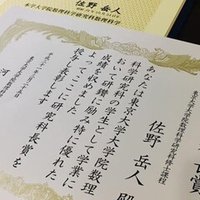 佐野 岳人
本学大学院数理科学研究科数理科学
佐野 岳人 殿
あなたは東京大学大学院数理
科学研究科の学生として学業に
おいて研鑽に励み特に優れた
成績を収めました
よってここに研究科長賞を
授与し表彰します
河